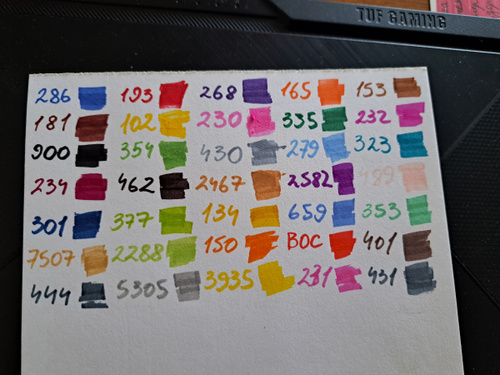 TUF GAMING
286 193 268 165 153
181 102 230 335 232
900 354 430 279 323
234 462 2467 2582 489
301 377 134 659 353
7507 2288 150 BOC 401
444 5305 3935 231 431